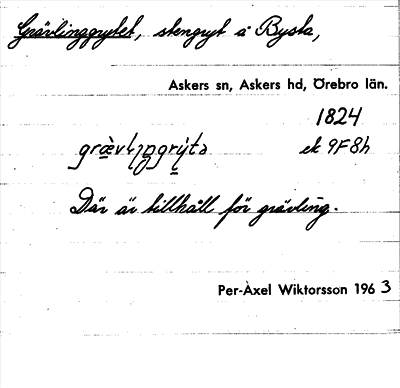 Grävlinggrytet, stengryt å Bysta,
Askers sn, Askers hd, Örebro län.
1824
ek 9F8h
Där är tillhåll för grävling.
Per-Axel Wiktorsson 1963